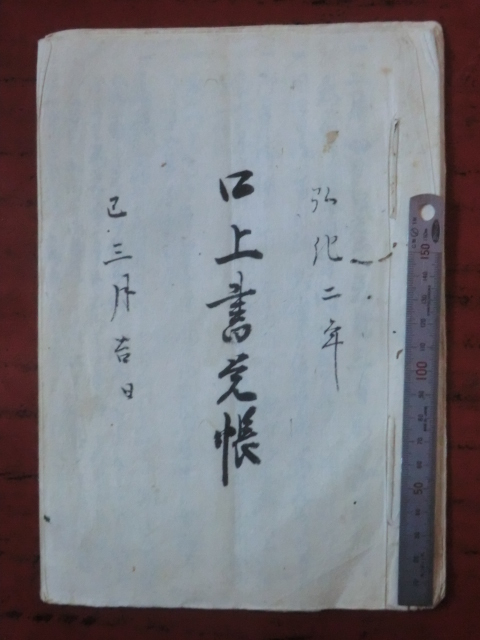 弘化二年
口上書覚帳
巳三月吉日
150
100
50